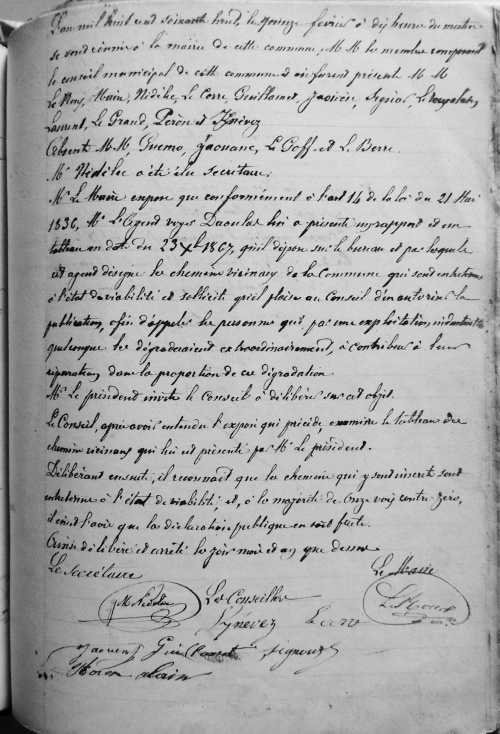 L'an mil huit cent soixante huit, le quinze fevrier à dix heures du matin
se sont réunis à la mairie de cette commune, M M les membres composant
le conseil municipal de cette commune où furent présents M M
Le Roux, Main, Nédélec, Le Corre, Guillamet, Jaouen, Signour,
Laurent, Le Grand, Péron et Ignévez
Absents M M, Guermo, Jaouanc, Le Goff et Le Berre.
Mr Nédélec a été élu secrétaire.
Mr Le Maire expose que conformément à l'art 14 de la loi du 21 Mai
1836, Mr L'agent voyer Daoulas lui a présenté un rapport et un
tableau en date du 23 Xbre 1867, qu'il dépose sur le bureau et par lequel
cet agent désigne les chemins vicinaux de la Commune qui sont entretenus
à l'état de viabilité et sollicite qu'il plaise au Conseil d'en autoriser la
publication, afin d'appeler les personnes qui, par une exploitation industrielle
quelconque les dégraderaient extraordinairement, à contribuer à leur
réparation, dans la proportion de ces dégradations
Mr Le président invite le Conseil à délibérer sur cet objet.
Le Conseil, après avoir entendu l'exposé qui précède, examiné le tableau des
chemins vicinaux qui lui est présenté par Mr Le président.
Délibérant ensuite, il reconnaît que les chemins qui y sont inscrits sont
entretenus à l'état de viabilité, et, à la majorité de Onze voix contre zéro,
il émet l'avis que la déclaration publique en soit faite.
Ainsi délibéré et arrêté les jour mois et an que dessus
Le Secrétaire Le Maire
Nédélec Les Conseillers Le Roux
Ignévez
Jaouen Signour